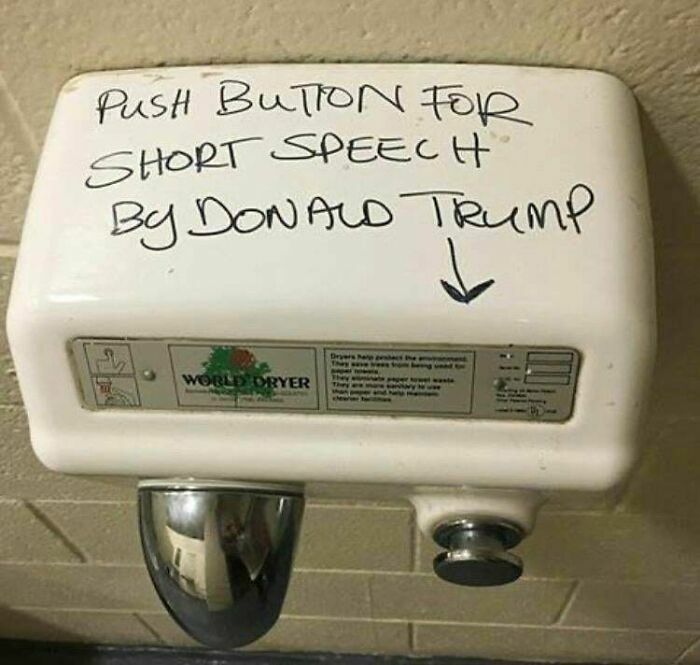 PUSH BUTTON FOR
SHORT SPEECH
BY DONALD TRUMP
WORLD DRYER
Dryers help protect the environment.
They save trees from being used for
paper towels.
They eliminate paper towel waste.
They are more sanitary to use
than paper and help maintain
cleaner facilities.